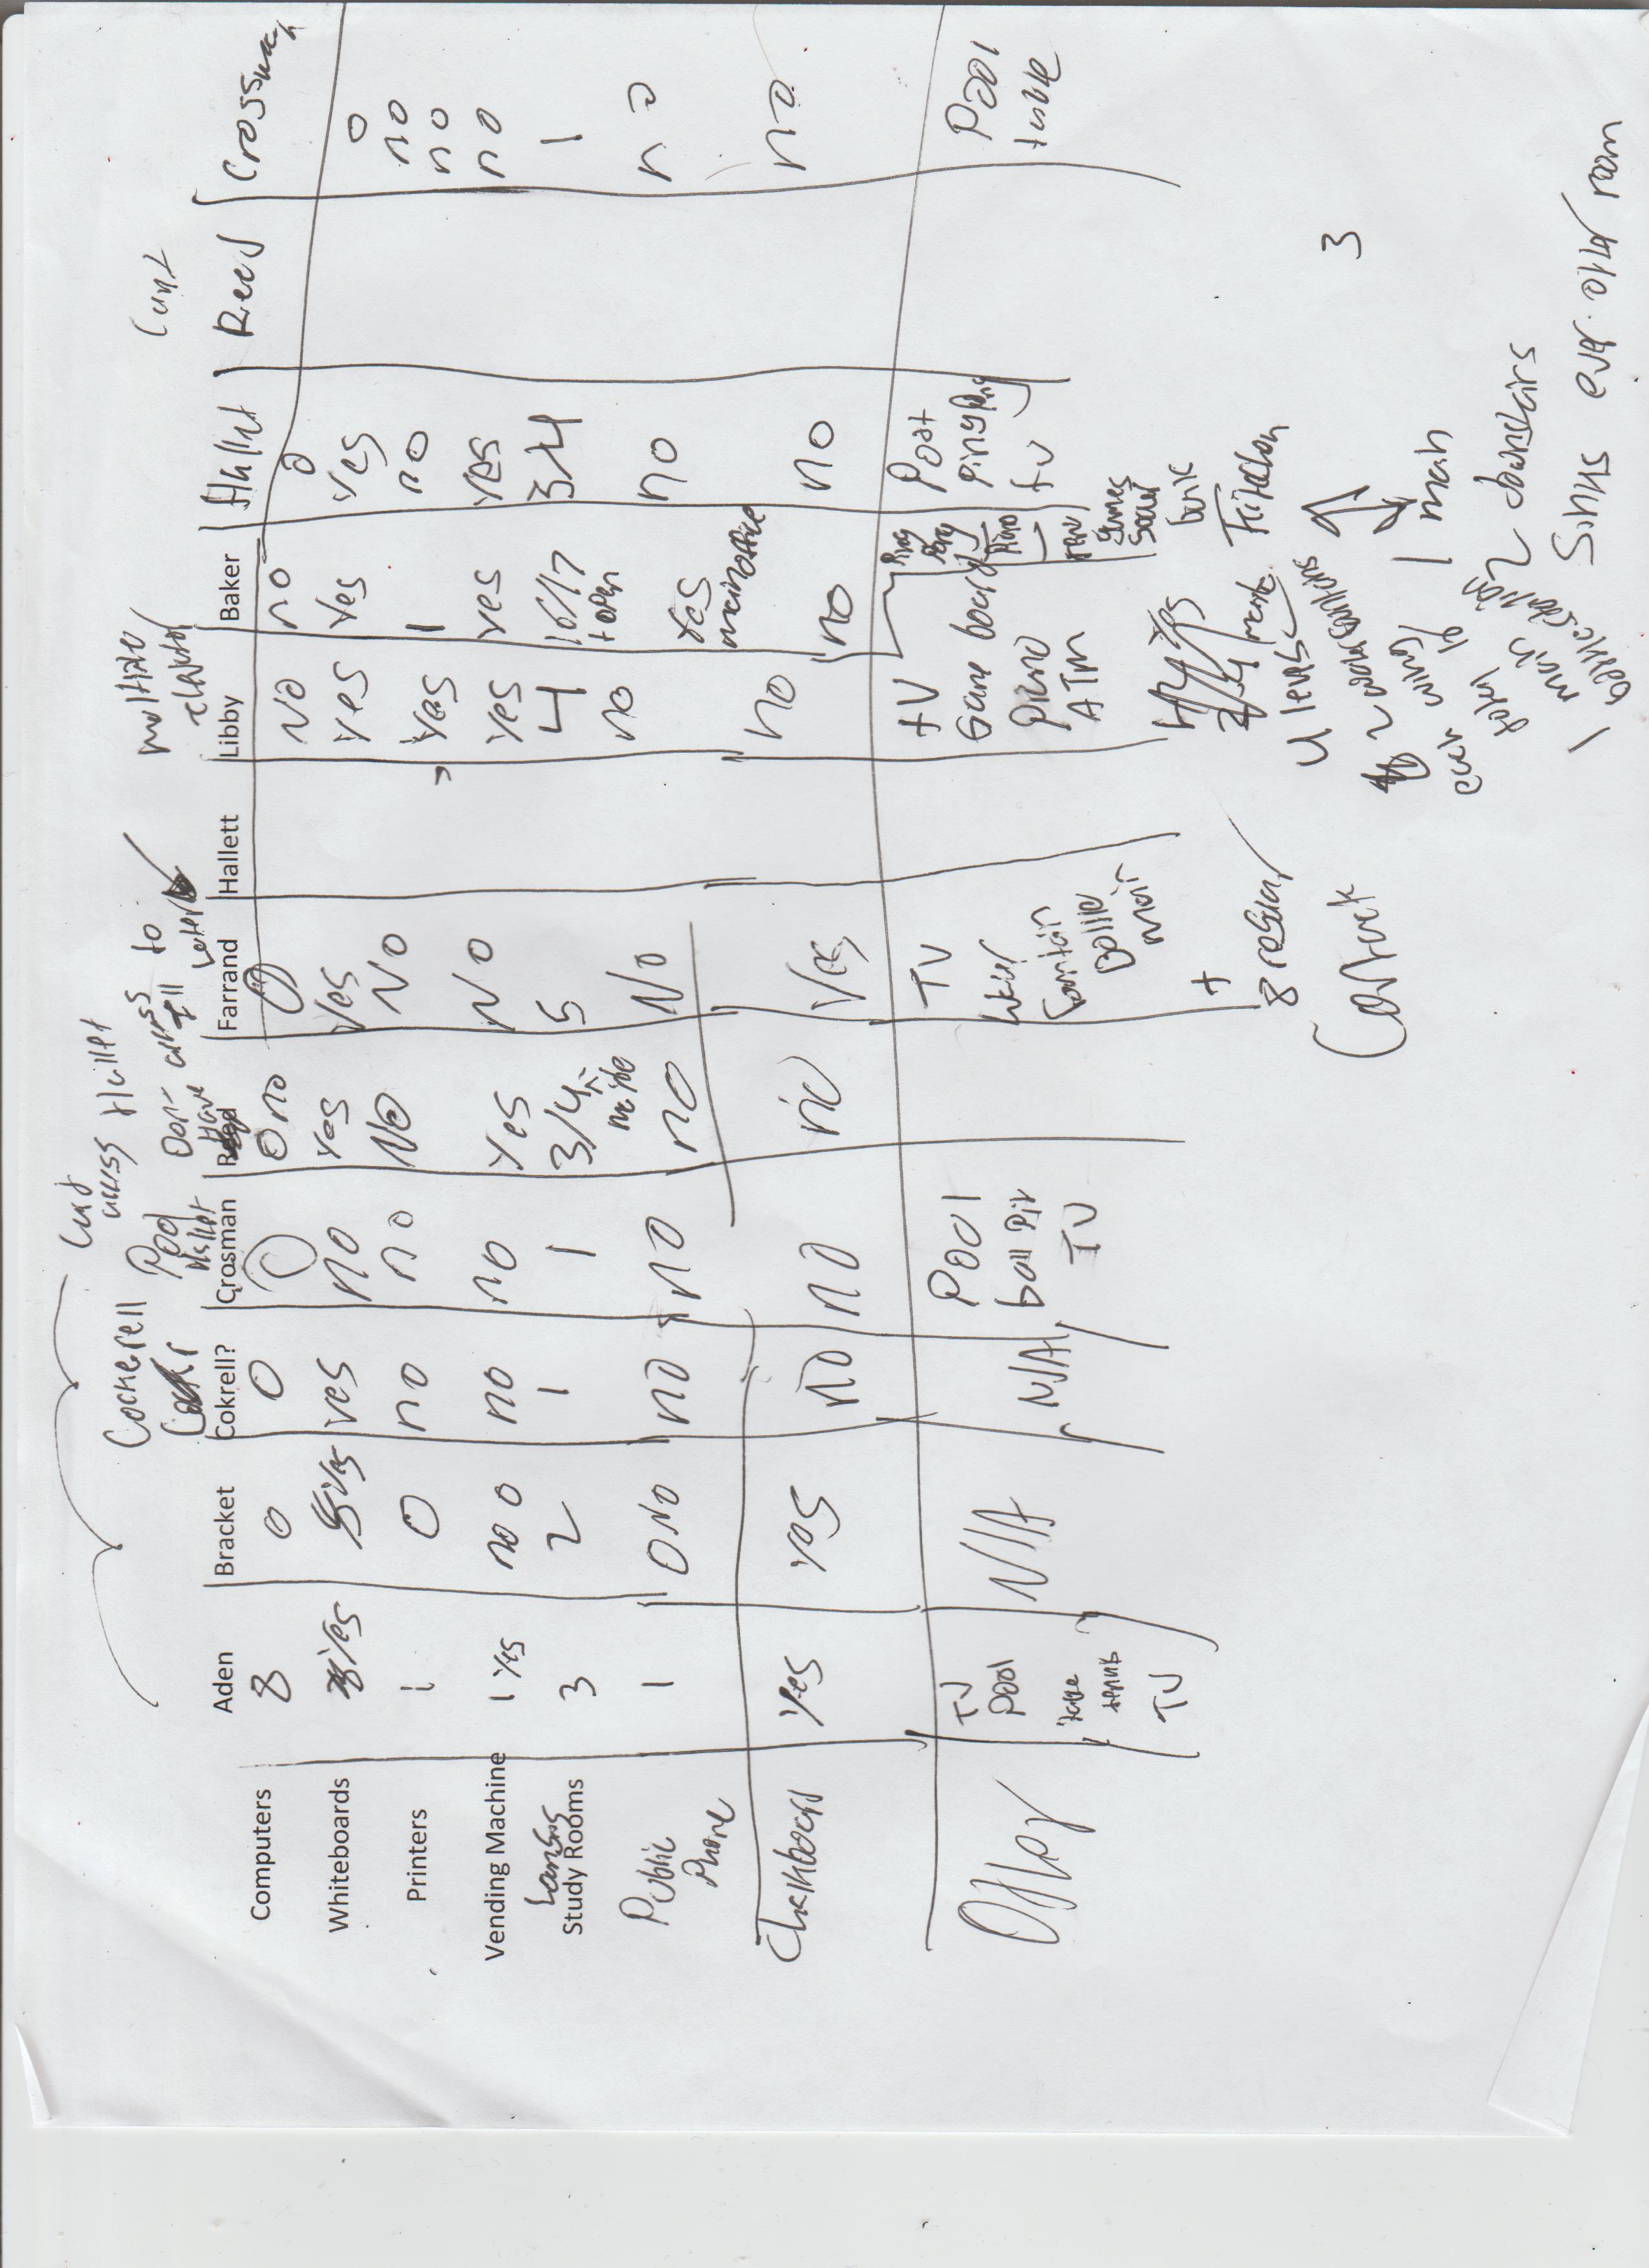 Card
access Hallet
Cockerell
Pool
Hallet
Don't
Have access
I'll to
later
multiple
elevator
Can't
Aden Bracket Cokrell? Crosman Reed Farrand Hallett Libby Baker Hallet Reed Crossman
Computers 8 0 0 0 0 no 0 No no 0 0
Whiteboards Yes Yes yes no Yes Yes Yes Yes Yes no
Printers 1 0 no no No No Yes 1 no no
Vending Machine 1 Yes no 0 no no Yes No Yes Yes Yes no
Study Rooms 3 2 1 1 3/4 5 4 16/17 3/4 1
+ open
Public
Phone 1 0 No no no no No no Yes no no
main office
Chalkboard Yes Yes no no no Yes no no no no
Other
TV
Pool
table
tennis
TV
N/A
N/A
Pool
ball pit
TV
TV
Water
Fountain
Bottle
main
+
8 regular
TV
Game board
Piano
ATM
Ping
Pong
Piano
games
Soccer
ping pong
tv
Pool
table
4 levels
2 water fountains
each wing
1 main
bottle station
1 main
2 downstairs
Sinks ever other room
3